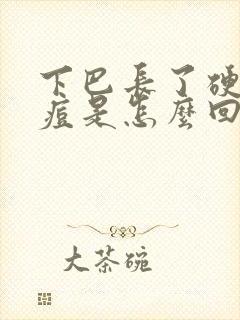 下巴長了硬
痘是怎麼回
大茶碗